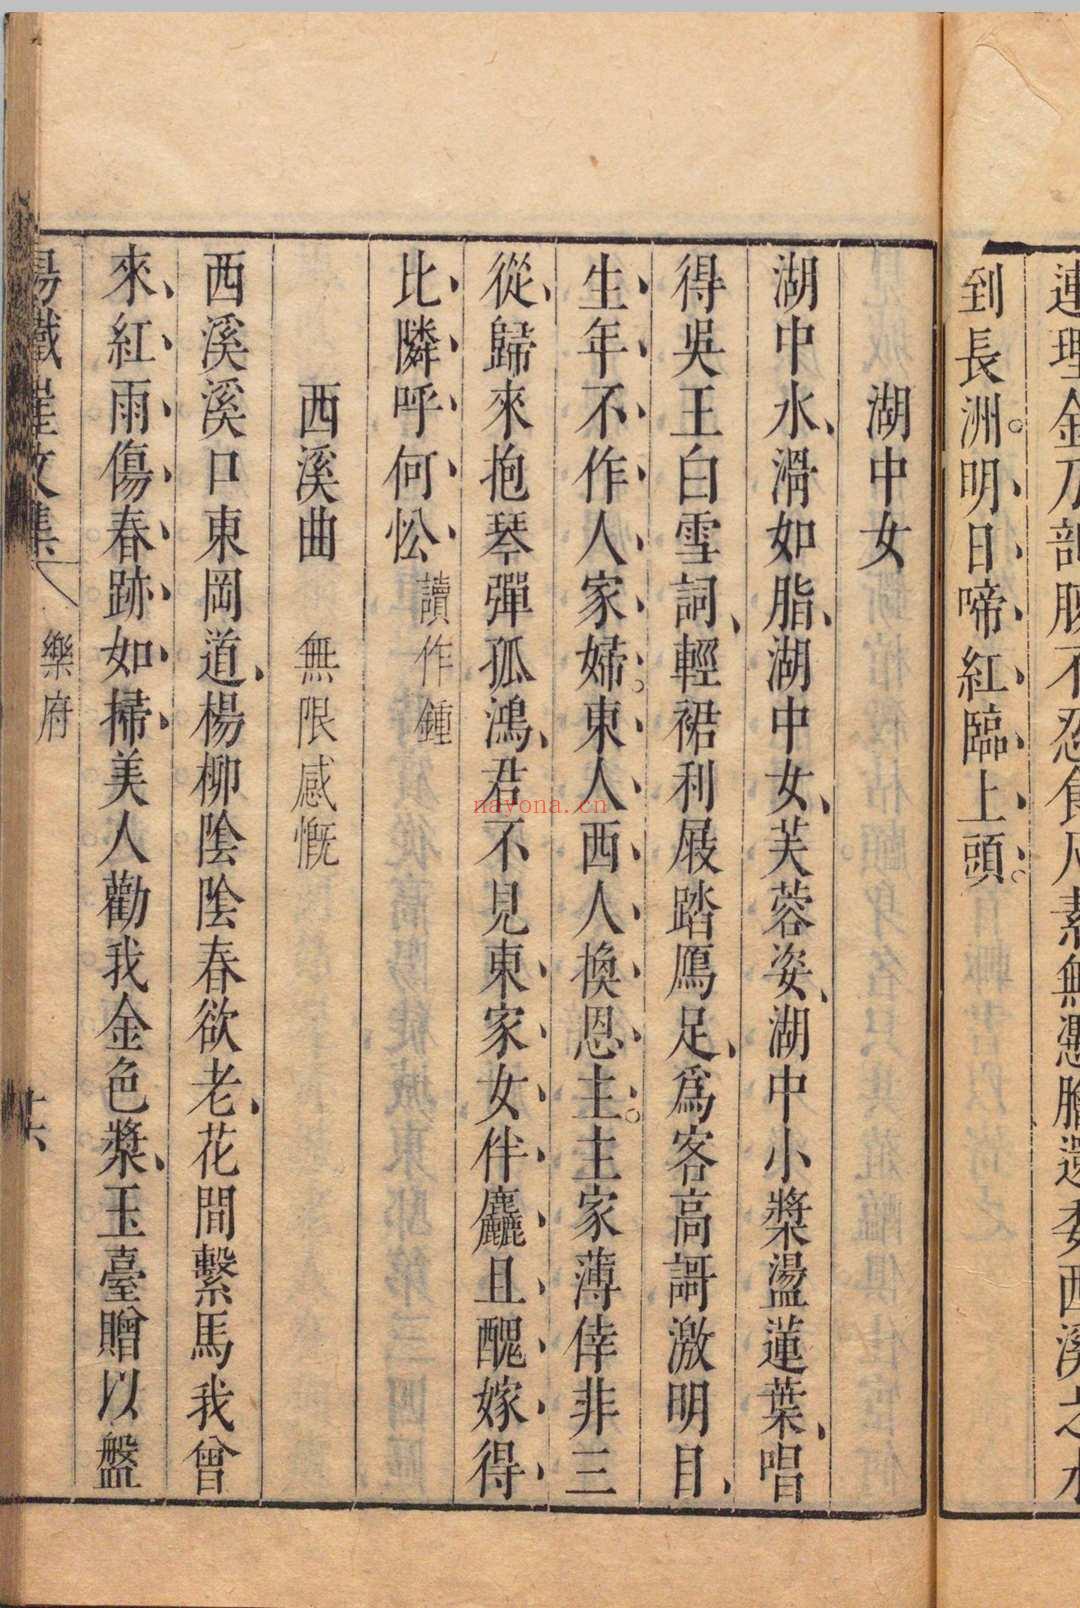 連理金刀剖腹不忍食尺素無憑膽還委西溪之水
到長洲明日啼紅臨上頭
湖中女
湖中水滑如脂湖中女芙蓉姿湖中小槳盪蓮葉唱
得吳王白雪詞輕裙利屐踏鴈足爲客高謌激明目
生年不作人家婦東人西人換恩主主家薄倖非三
從歸來抱琴彈孤鴻君不見東家女伴麤且醜嫁得
比隣呼何忪讀作鍾
西溪曲 無限感慨
西溪溪口東岡道楊柳陰陰春欲老花間繫馬我曾
來紅雨傷春跡如掃美人勸我金色槳玉臺贈以盤
楊鐵崖文集 樂府
nayona.cn